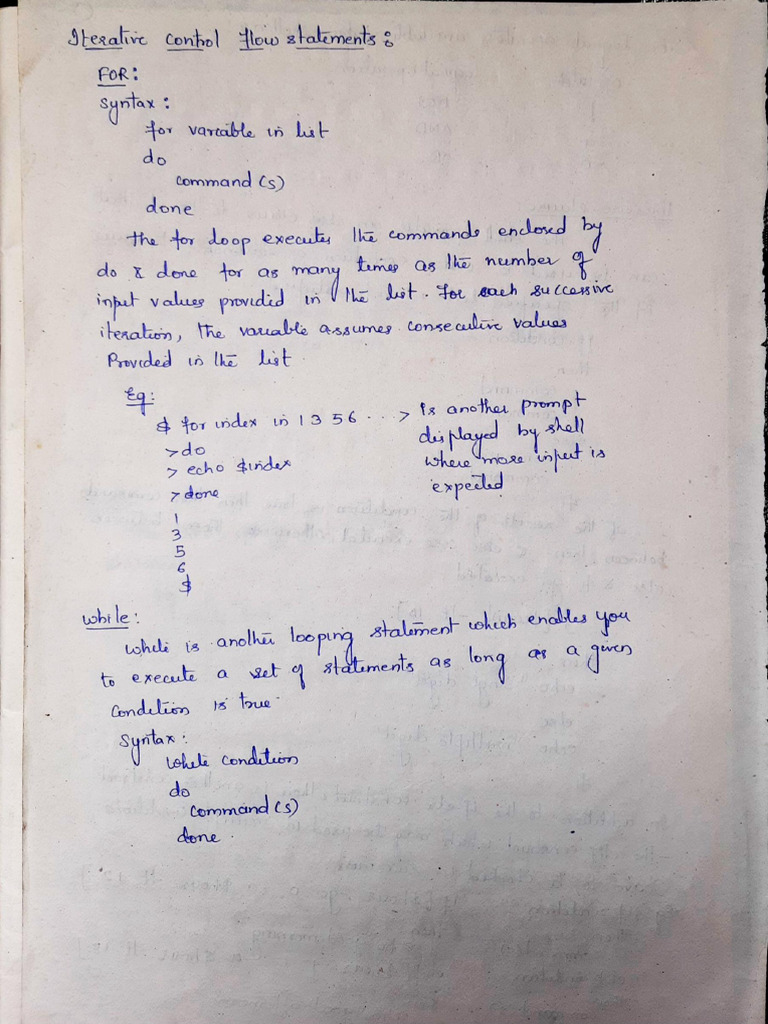 Iterative Control Flow statements:
FOR:
Syntax:
for variable in list
do
command(s)
done
The for loop executes the commands enclosed by
do & done for as many times as the number of
input values provided in the list. For each successive
iteration, the variable assumes consecutive values
Provided in the list.
Eg:
$ for index in 1 3 5 6 . . . > Is another prompt
displayed by shell
> do
where more input is
> echo $index
expected
> done
1
3
5
6
$
While:
While is another looping statement which enables you
to execute a set of statements as long as a given
condition is true.
Syntax:
While condition
do
command(s)
done.